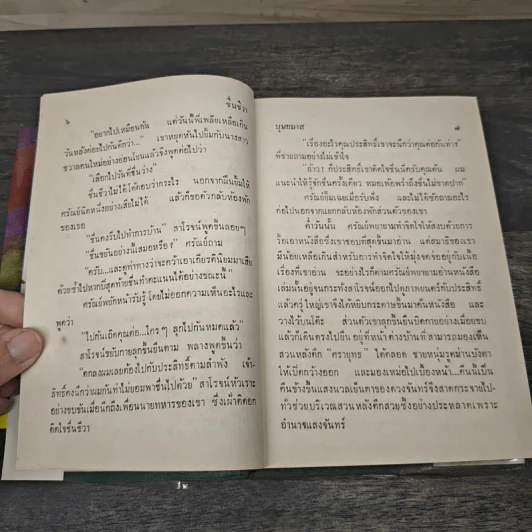 ๖
ชื่นชีวา
"อยากไปเหมือนกัน แต่วันนี้พี่เพลียเหลือเกิน
วันหลังค่อยไปกันดีกว่า..." เขาหยุดหันไปยิ้มกับนางสาว
ชวาลคนใหม่อย่างอ่อนโยนแล้วจึงพูดต่อไปว่า
"เลือกไปวันที่ชื่นว่าง"
ชื่นชีวาไม่ได้โต้ตอบว่ากระไร นอกจากฝืนยิ้มให้
ศรัณย์นิดหนึ่งอย่างเสียไม่ได้ แล้วก็ขอตัวกลับห้องพัก
ของเธอ
"ชื่นคงรีบไปทำการบ้าน" สาโรจน์พูดขึ้นลอยๆ
"ชื่นขยันอย่างนี้เสมอหรือ" ศรัณย์ถาม
"ครับ...และดูท่าทางว่าจะคว้าเอาเกียรตินิยมมาเสีย
ด้วยซ้ำไปหากมีสุดท้ายชื่นทำคะแนนได้อย่างขณะนี้"
ศรัณย์พยักหน้ารับรู้ โดยไม่ออกความเห็นอะไรและ
พูดว่า
"ไปกันเถิดคุณต่อ...ใครๆ ลุกไปกันหมดแล้ว"
สาโรจน์ขยับกายลุกขึ้นยืนตาม พลางพูดขึ้นว่า
"ตกลงผมเลยต้องไปกับประสิทธิ์ตามลำพัง เจ้า-
สิทธิ์คงนึกว่าผมกันท่าไม่ยอมพาชื่นไปด้วย" สาโรจน์หัวเราะ
อย่างขบขันเมื่อนึกถึงเพื่อนนายทหารของเขา ซึ่งเฝ้าติดอก
ติดใจชื่นชีวา
บุษยมาส
๗
"เรื่องอะไรคุณประสิทธิ์เขาจะนึกว่าคุณต่อกันท่าง"
พี่ชายถามอย่างไม่เข้าใจ
"อ้าว! ก็ประสิทธิ์เขาติดใจชื่นนี่ครับคุณต้น ผม
แนะนำให้รู้จักชื่นครั้งเดียว หมอเพ้อพร่ำถึงชื่นไม่ขาดปาก"
ศรัณย์ยิ้มเฉยเมื่อรับฟัง และไม่ได้ซักถามอะไร
ต่อไปนอกจากแยกกลับห้องพักส่วนตัวของเขา
ค่ำวันนั้น ศรัณย์พยายามทำจิตใจให้สงบด้วยการ
รื้อเอาหนังสือซึ่งเขาชอบที่สุดขึ้นมาอ่าน แต่สมาธิของเขา
มีน้อยเหลือเกินสำหรับการทำใจให้มุ่งจดจ่ออยู่กับเนื้อ
เรื่องที่เขาอ่าน จะอย่างไรก็ตามศรัณย์พยายามอ่านหนังสือ
เล่มนั้นอยู่จนกระทั่งสาโรจน์ออกไปดูภาพยนตร์กับประสิทธิ์
แล้วครู่ใหญ่เขาจึงได้หยิบกระดาษขั้นมาคั่นหนังสือ และ
วางไว้บนโต๊ะ ส่วนตัวเขาลุกขึ้นยืนบิดกายอย่างเมื่อยขบ
แล้วก็เดินตรงไปยืน อยู่ที่หน้าต่างบ้านที่สามารถมองเห็น
สวนหลังตึก "ศรายุทธ" ได้ตลอด ชายหนุ่มรูดม่านบังตา
ให้เปิดกว้างออก และมองเหม่อไปเบื้องหน้า...คืนนี้เป็น
คืนข้างขึ้นแสงนวลเย็นตาของดวงจันทร์จึงสาดกระจายไป-
ทั่วช่วยบริเวณสวนหลังตึกสวยซึ้งอย่างประหลาดเพราะ
อำนาจแสงจันทร์